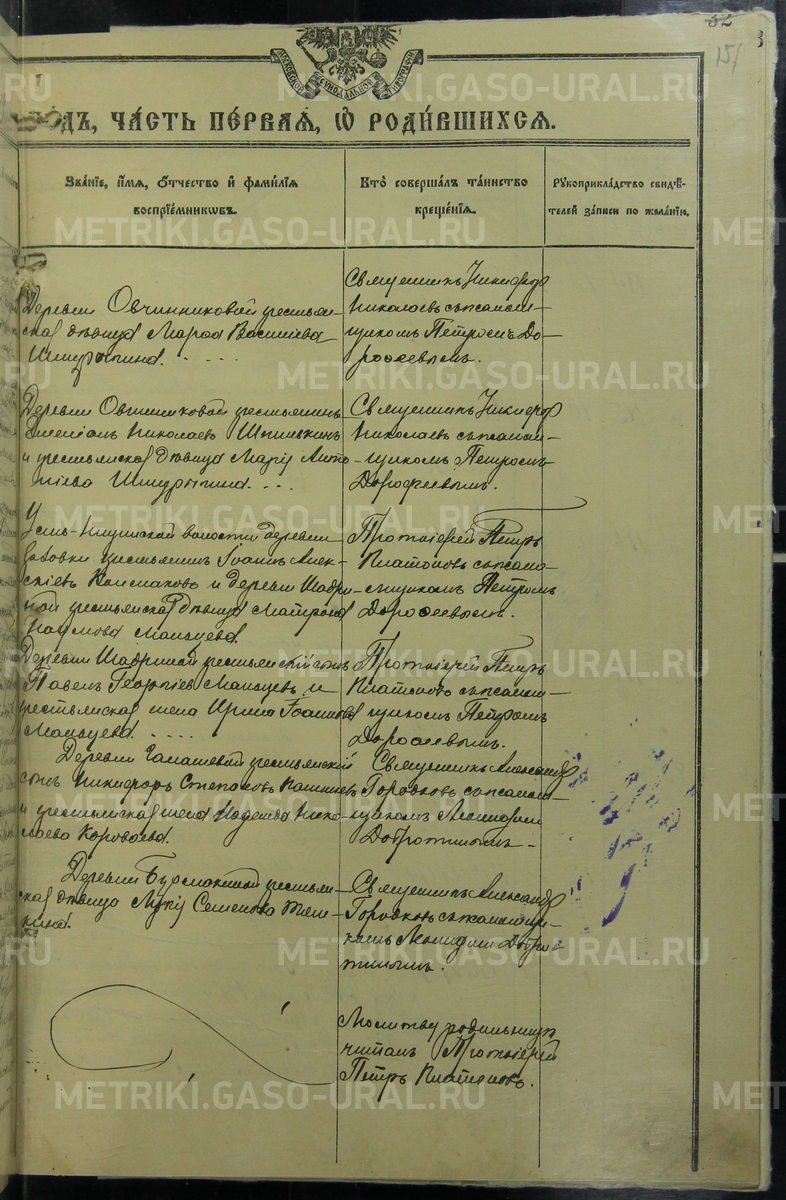 52
151
МОСКОВСКОЙ СѴНОДАЛЬНОЙ ТИПОГРАФІИ
ГОДЪ, ЧАСТЬ ПЕРВАЯ, Ѡ РОДИВШИХСЯ.
Званіе, имя, отчество и фамилія воспріемниковъ.
Кто совершалъ таинство крещенія.
Рукоприкладство свидѣтелей записи по желанію.
Деревни Овчинниковой крестьян-
ская дѣвица Марѳа Васильева
Священникъ Никифоръ
Николаевъ съ псалом-
щикомъ Петромъ До-
роѳеевымъ.
Деревни Овчинниковой крестьянинъ
Николаевъ
и крестьянская дѣвица Марія Анто-
Священникъ Никифоръ
Николаевъ съ псалом-
щикомъ Петромъ
Дорофеевымъ.
волости деревни
крестьянинъ Іоаннъ Алек-
и деревни Шадри-
ной крестьянская дѣвица Матрона
Наумова Мальцева.
Протоіерей Петръ
Платоновъ съ псало-
мщикомъ Петромъ
Дороѳеевымъ.
Деревни Шадриной крестьянскій сынъ
Павелъ Георгіевъ Мальцевъ и
крестьянская жена Ирина Іоаннова
Мальцева.
Протоіерей Петръ
Платоновъ съ псалом-
щикомъ Петромъ
Дороѳеевымъ.
Деревни крестьянскій
сынъ Никифоръ Степановъ
и крестьянская жена Надежда Нико-
лаева Короваева.
Священникъ Александръ
Городковъ съ псалом-
щикомъ Леонидомъ
Добротинымъ.
Деревни крестьян-
ская дѣвица Семенова
Священникъ Александръ
Городковъ съ псаломщи-
комъ Леонидомъ Добро-
тинымъ.
Молитву родильницѣ
читалъ Протоіерей
Петръ Платоновъ.
METRIKI.GASO-URAL.RU